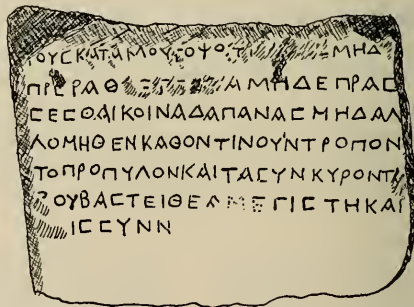 ΤΟΥϹΚΑΤΑΜΟΥ ΜΗΔ
ΠΡΕΡΑΘ ΑΜΗΔΕΠΡΑϹ
ϹΕϹΘΑΙΚΟΙΝΑΔΑΠΑΝΑϹΜΗΔΑΛ
ΛΟΜΗΘΕΝΚΑΘΟΝΤΙΝΟΥΝΤΡΟΠΟΝ
ΤΟΠΡΟΠΥΛΟΝΚΑΙΤΑϹΥΝΚΥΡΟΝΤΑ
ΒΟΥΒΑϹΤΕΙΘΕΑΜΕΓΙϹΤΗΚΑΙ
ΙϹϹΥΝΝ